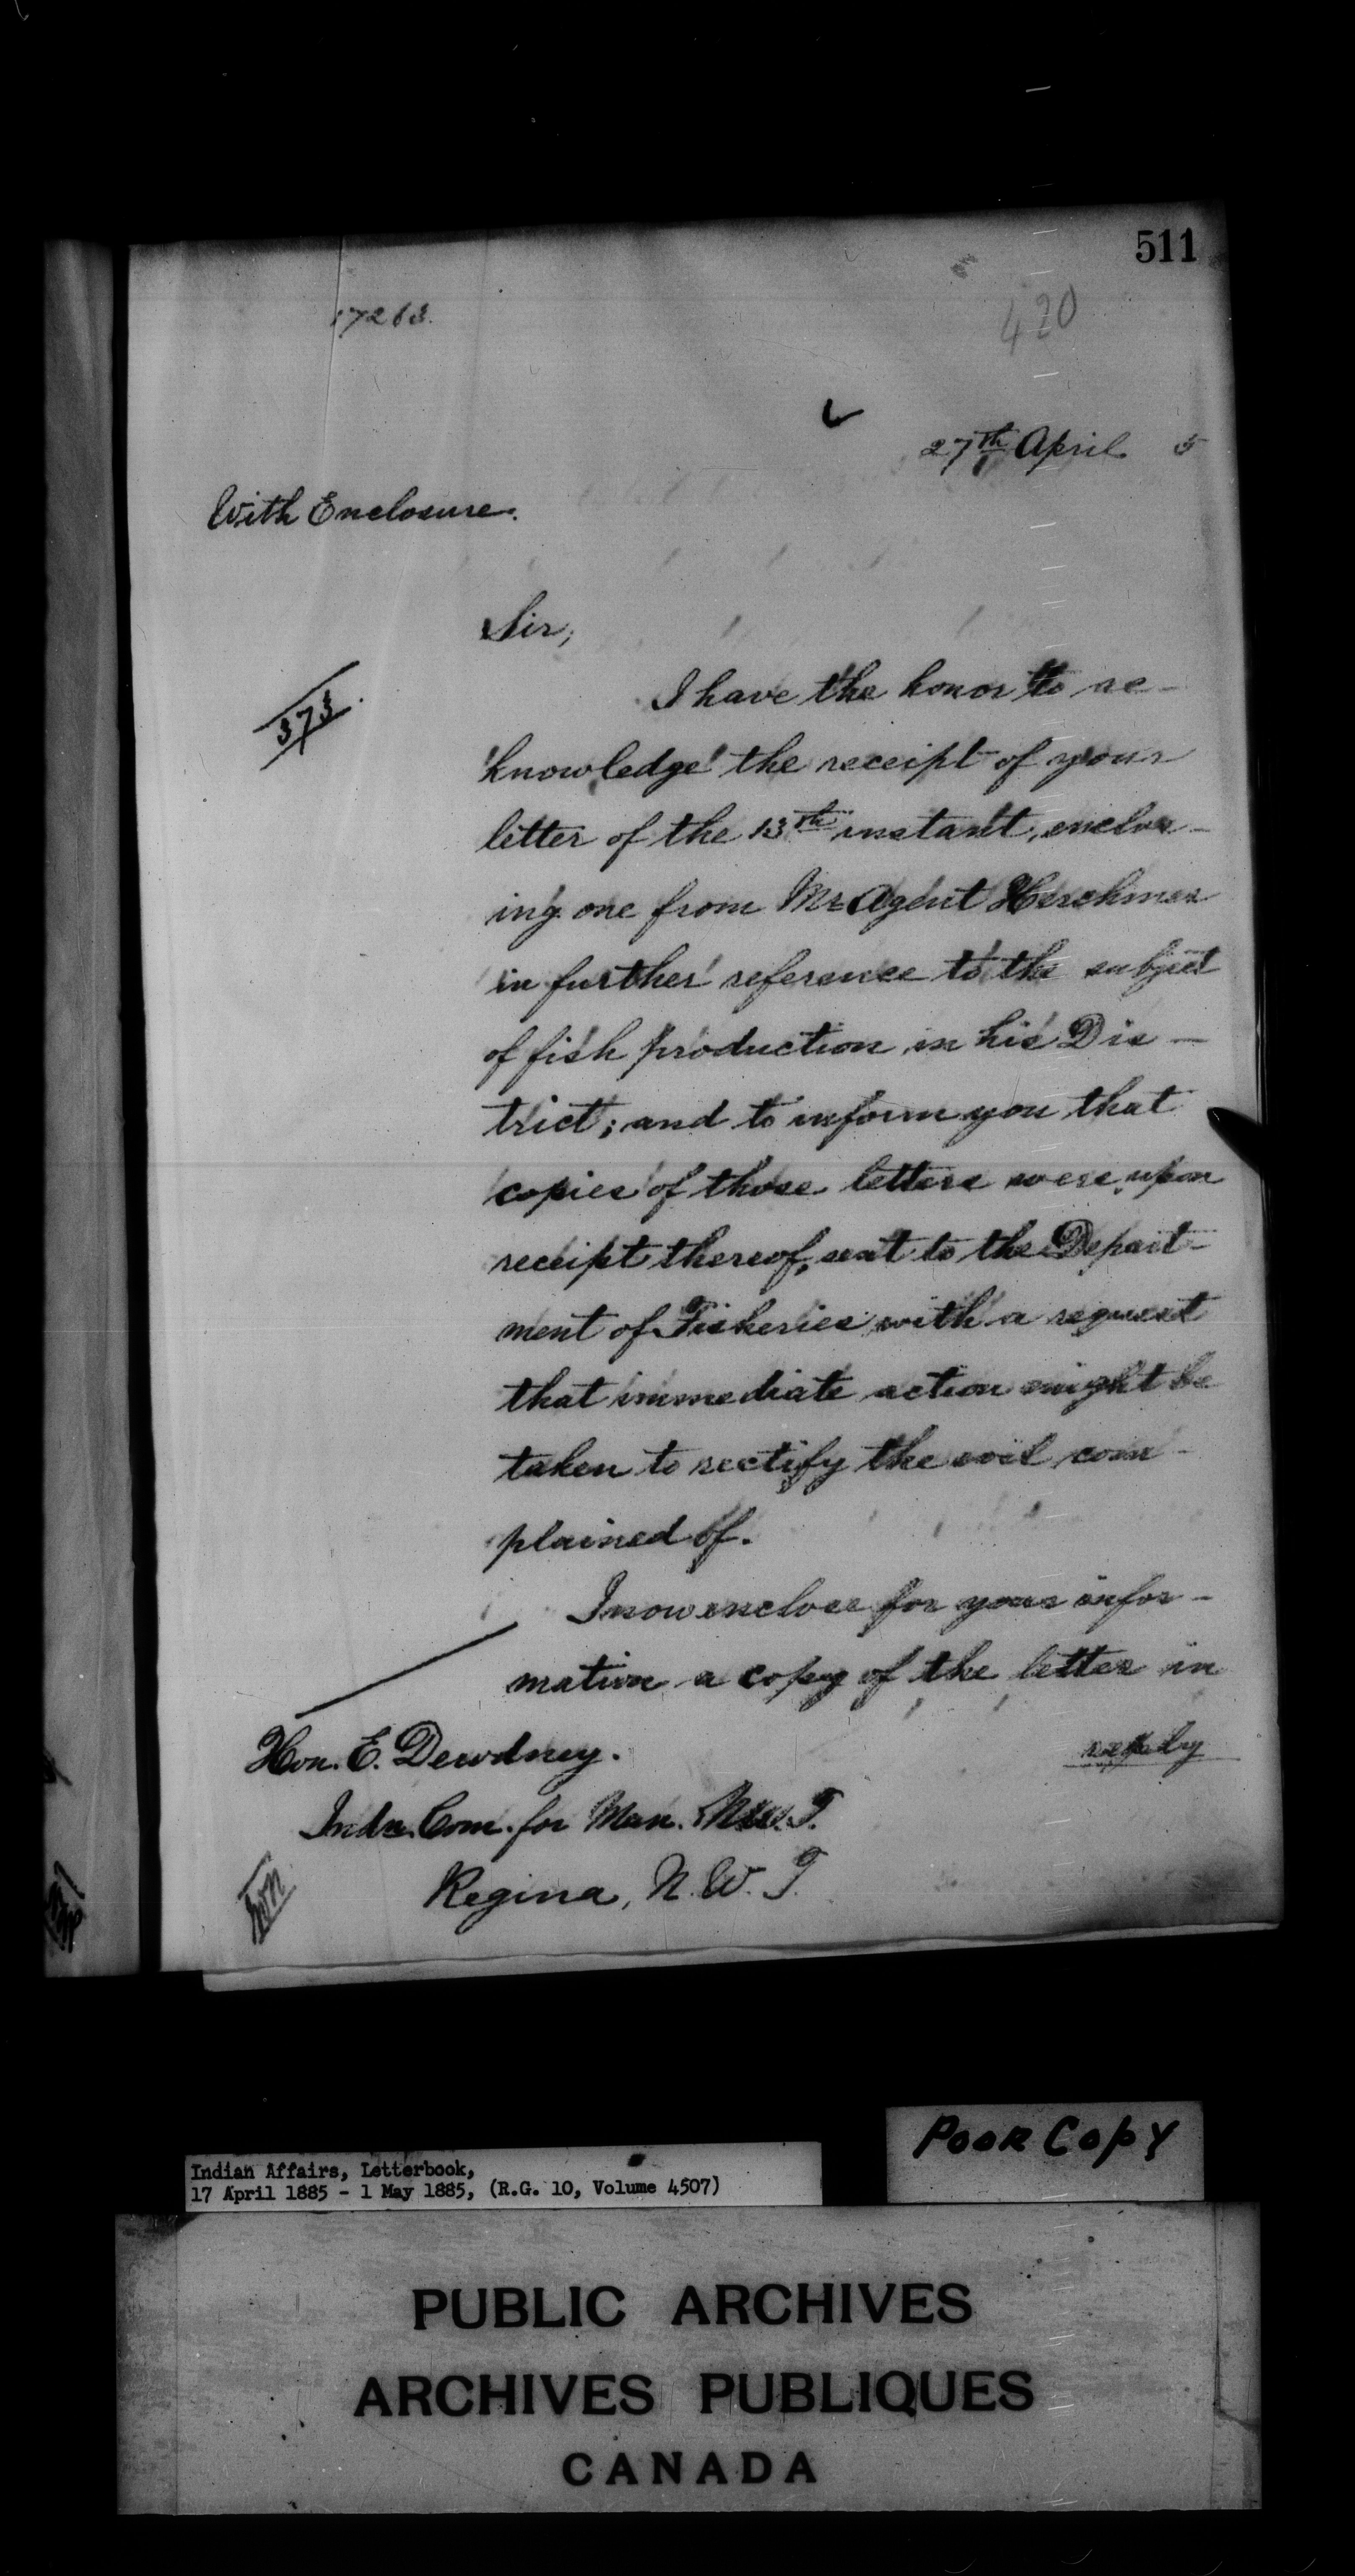 511
17263.
420
27th April 5
With Enclosure.
Sir,
373
I have the honor to ac-
knowledge the receipt of your
letter of the 13th instant, enclos-
ing one from Mr Agent Herchmer
in further reference to the subject
of fish production in his Dis-
trict; and to inform you that
copies of those letters were, upon
receipt thereof, sent to the Depart-
ment of Fisheries with a request
that immediate action might be
taken to rectify the evil com-
plained of.
I now enclose for your infor-
mation a copy of the letter in
reply
Hon. E. Dewdney.
Indn. Com. for Man. N.W.T.
Regina, N.W.T.
Poor Copy
Indian Affairs, Letterbook,
17 April 1885 - 1 May 1885, (R.G. 10, Volume 4507)
PUBLIC ARCHIVES
ARCHIVES PUBLIQUES
CANADA